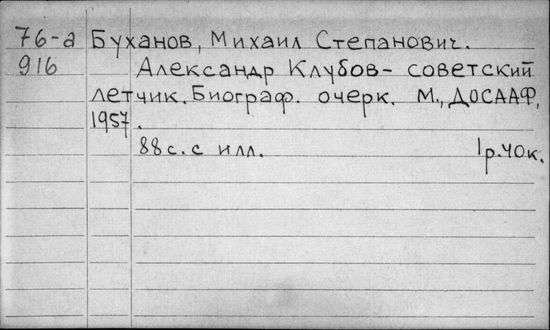 76-а Буханов, Михаил Степанович.
916 Александр Клубов- советский
летчик. Биограф. очерк. М., ДОСААФ,
1957.
88с. с илл. 1р.40к.